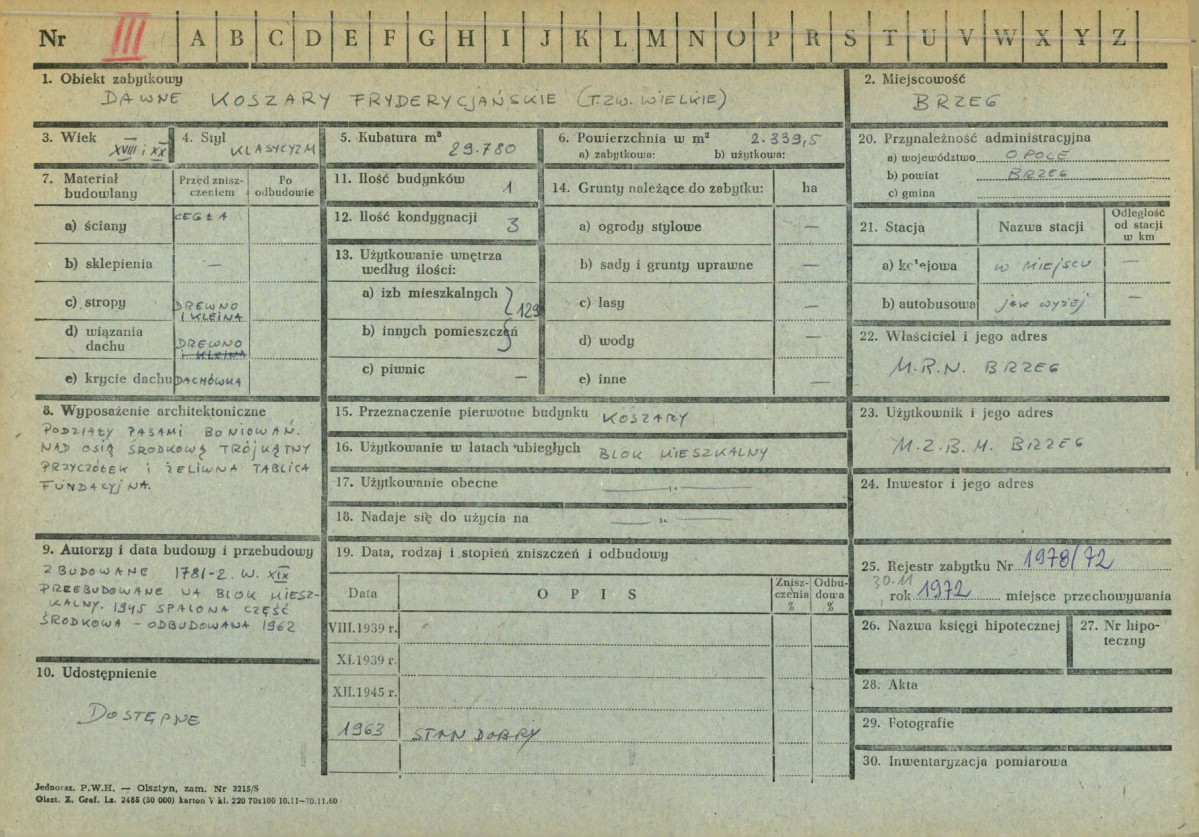 Nr III A B C D E F G H I J K L M N O P R S T U V W X Y Z
1. Obiekt zabytkowy
DAWNE KOSZARY FRYDERYCJAŃSKIE (TZW. WIELKIE)
2. Miejscowość
BRZEG
3. Wiek
XVIII i XX
4. Styl
KLASYCYZM
5. Kubatura m³
29.780
6. Powierzchnia w m² 2.339,5
a) zabytkowa: b) użytkowa:
7. Materiał budowlany
Przed zniszczeniem
Po odbudowie
a) ściany CEGŁA
b) sklepienia —
c) stropy DREWNO I KLEINA
d) wiązania dachu DREWNO I KLEINA
e) krycie dachu DACHÓWKA
8. Wyposażenie architektoniczne
PODZIAŁY PASAMI BONIOWAŃ.
NAD OSIĄ ŚRODKOWĄ TRÓJKĄTNY
PRZYCZÓŁEK I ŻELIWNA TABLICA
FUNDACYJNA.
9. Autorzy i data budowy i przebudowy
ZBUDOWANE 1781-2. W. XIX
PRZEBUDOWANE NA BLOK MIESZ-
KALNY. 1945 SPALONA CZĘŚĆ
ŚRODKOWA – ODBUDOWANA 1962
10. Udostępnienie
DOSTĘPNE
11. Ilość budynków
1
12. Ilość kondygnacji
3
13. Użytkowanie wnętrza
według ilości:
a) izb mieszkalnych } 129
b) innych pomieszczeń
c) piwnic —
14. Grunty należące do zabytku: ha
a) ogrody stylowe —
b) sady i grunty uprawne —
c) lasy —
d) wody —
e) inne —
15. Przeznaczenie pierwotne budynku KOSZARY
16. Użytkowanie w latach ubiegłych BLOK MIESZKALNY
17. Użytkowanie obecne — „ —
18. Nadaje się do użycia na — „ —
19. Data, rodzaj i stopień zniszczeń i odbudowy
Data OPIS Zniszczenia % Odbudowa %
VIII.1939 r.
XI.1939 r.
XII.1945 r.
1963 STAN DOBRY
20. Przynależność administracyjna
a) województwo OPOLE
b) powiat BRZEG
c) gmina
21. Stacja Nazwa stacji Odległość od stacji w km
a) kolejowa w MIEJSCU —
b) autobusowa jak wyżej —
22. Właściciel i jego adres
M.R.N. BRZEG
23. Użytkownik i jego adres
M.Z.B.M. BRZEG
24. Inwestor i jego adres
25. Rejestr zabytku Nr 1978/72
30.11
rok 1972 miejsce przechowywania
26. Nazwa księgi hipotecznej
27. Nr hipo-
teczny
28. Akta
29. Fotografie
30. Inwentaryzacja pomiarowa
Jednoraz. P.W.H. — Olsztyn, zam. Nr 3215/S
Olszt. Z. Graf. Lz. 2485 (30 000) karton V kl. 220 70x100 10.11—20.11.60